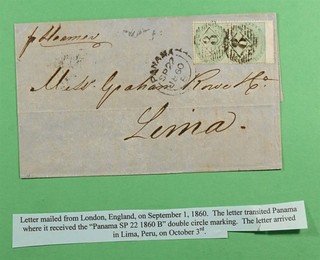 p Steamer
PANAMA
SP 22
1860
Messrs Graham Rowe & Co.
Lima.
Letter mailed from London, England, on September 1, 1860. The letter transited Panama
where it received the "Panama SP 22 1860 B" double circle marking. The letter arrived
in Lima, Peru, on October 3rd.